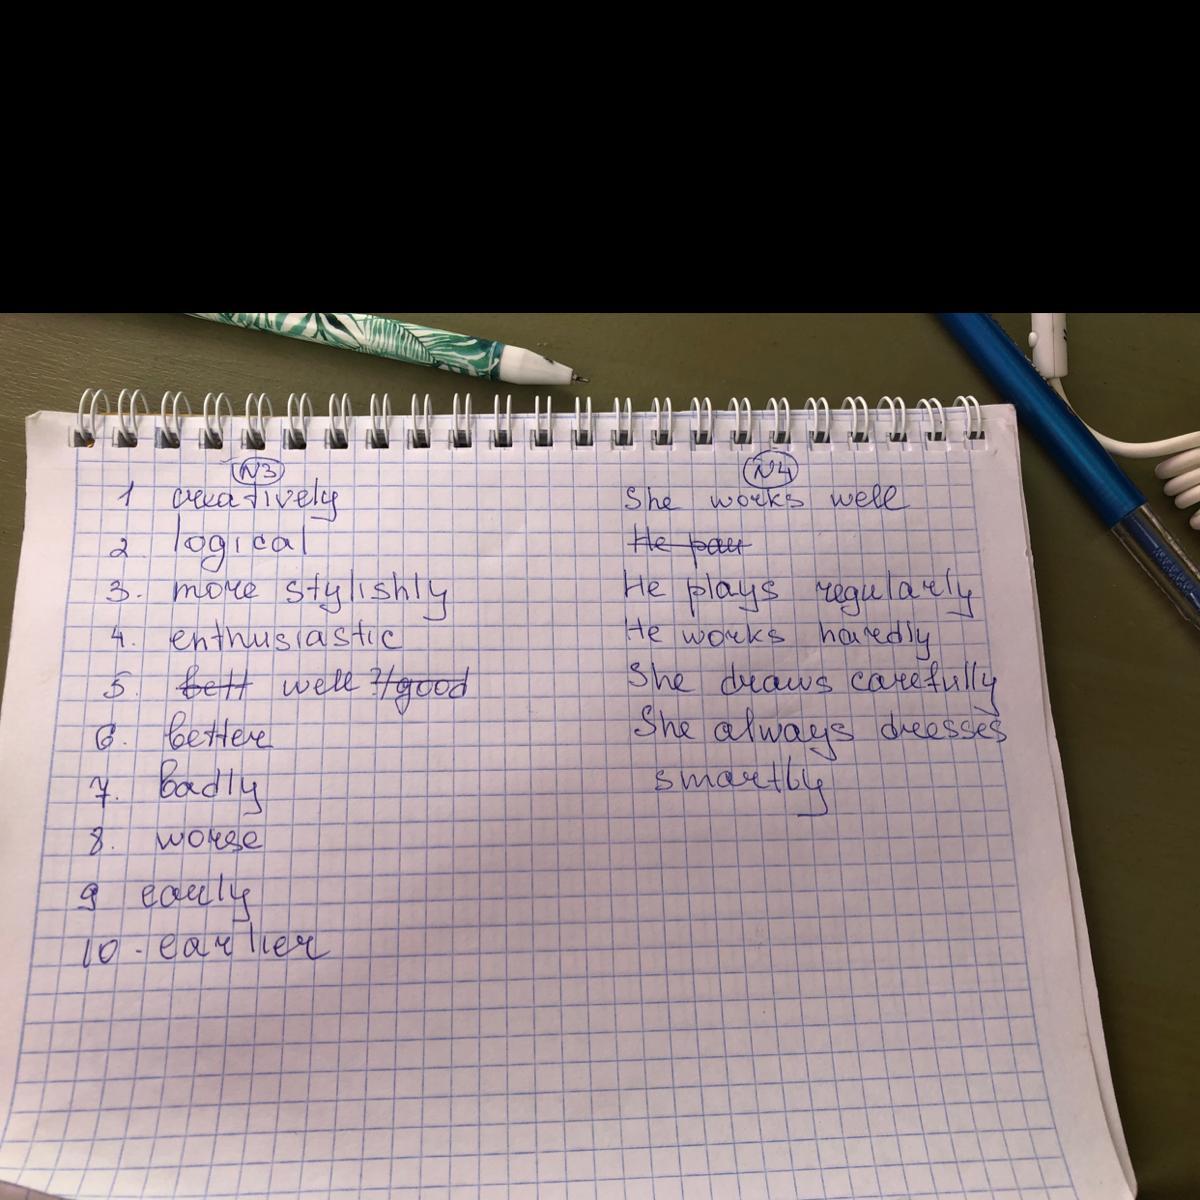 N3
1 creatively
2. logical
3. more stylishly
4. enthusiastic
5. bett well good
6. better
7. badly
8. worse
9 early
10 - earlier
N4
She works well
He pau
He plays regularly
He works hardly
She draws carefully
She always dresses
smartly